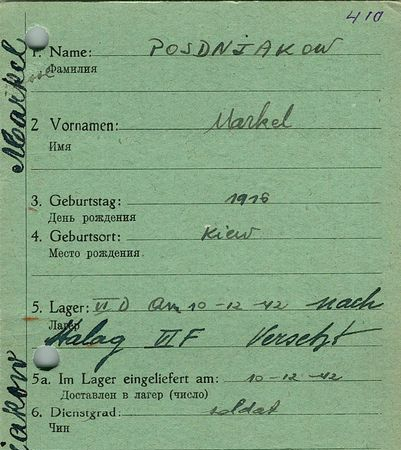 410
1. Name: POSDNJAKOW
Фамилия
2 Vornamen: Markel
Имя
3. Geburtstag: 1916
День рождения
4. Geburtsort: Kiew
Место рождения
5. Lager: VI D Am 10-12-42 nach
Лагер
Stalag VI F Versetzt
5a. Im Lager eingeliefert am: 10-12-42
Доставлен в лагер (число)
6. Dienstgrad: soldat
Чин
Markel
jakow